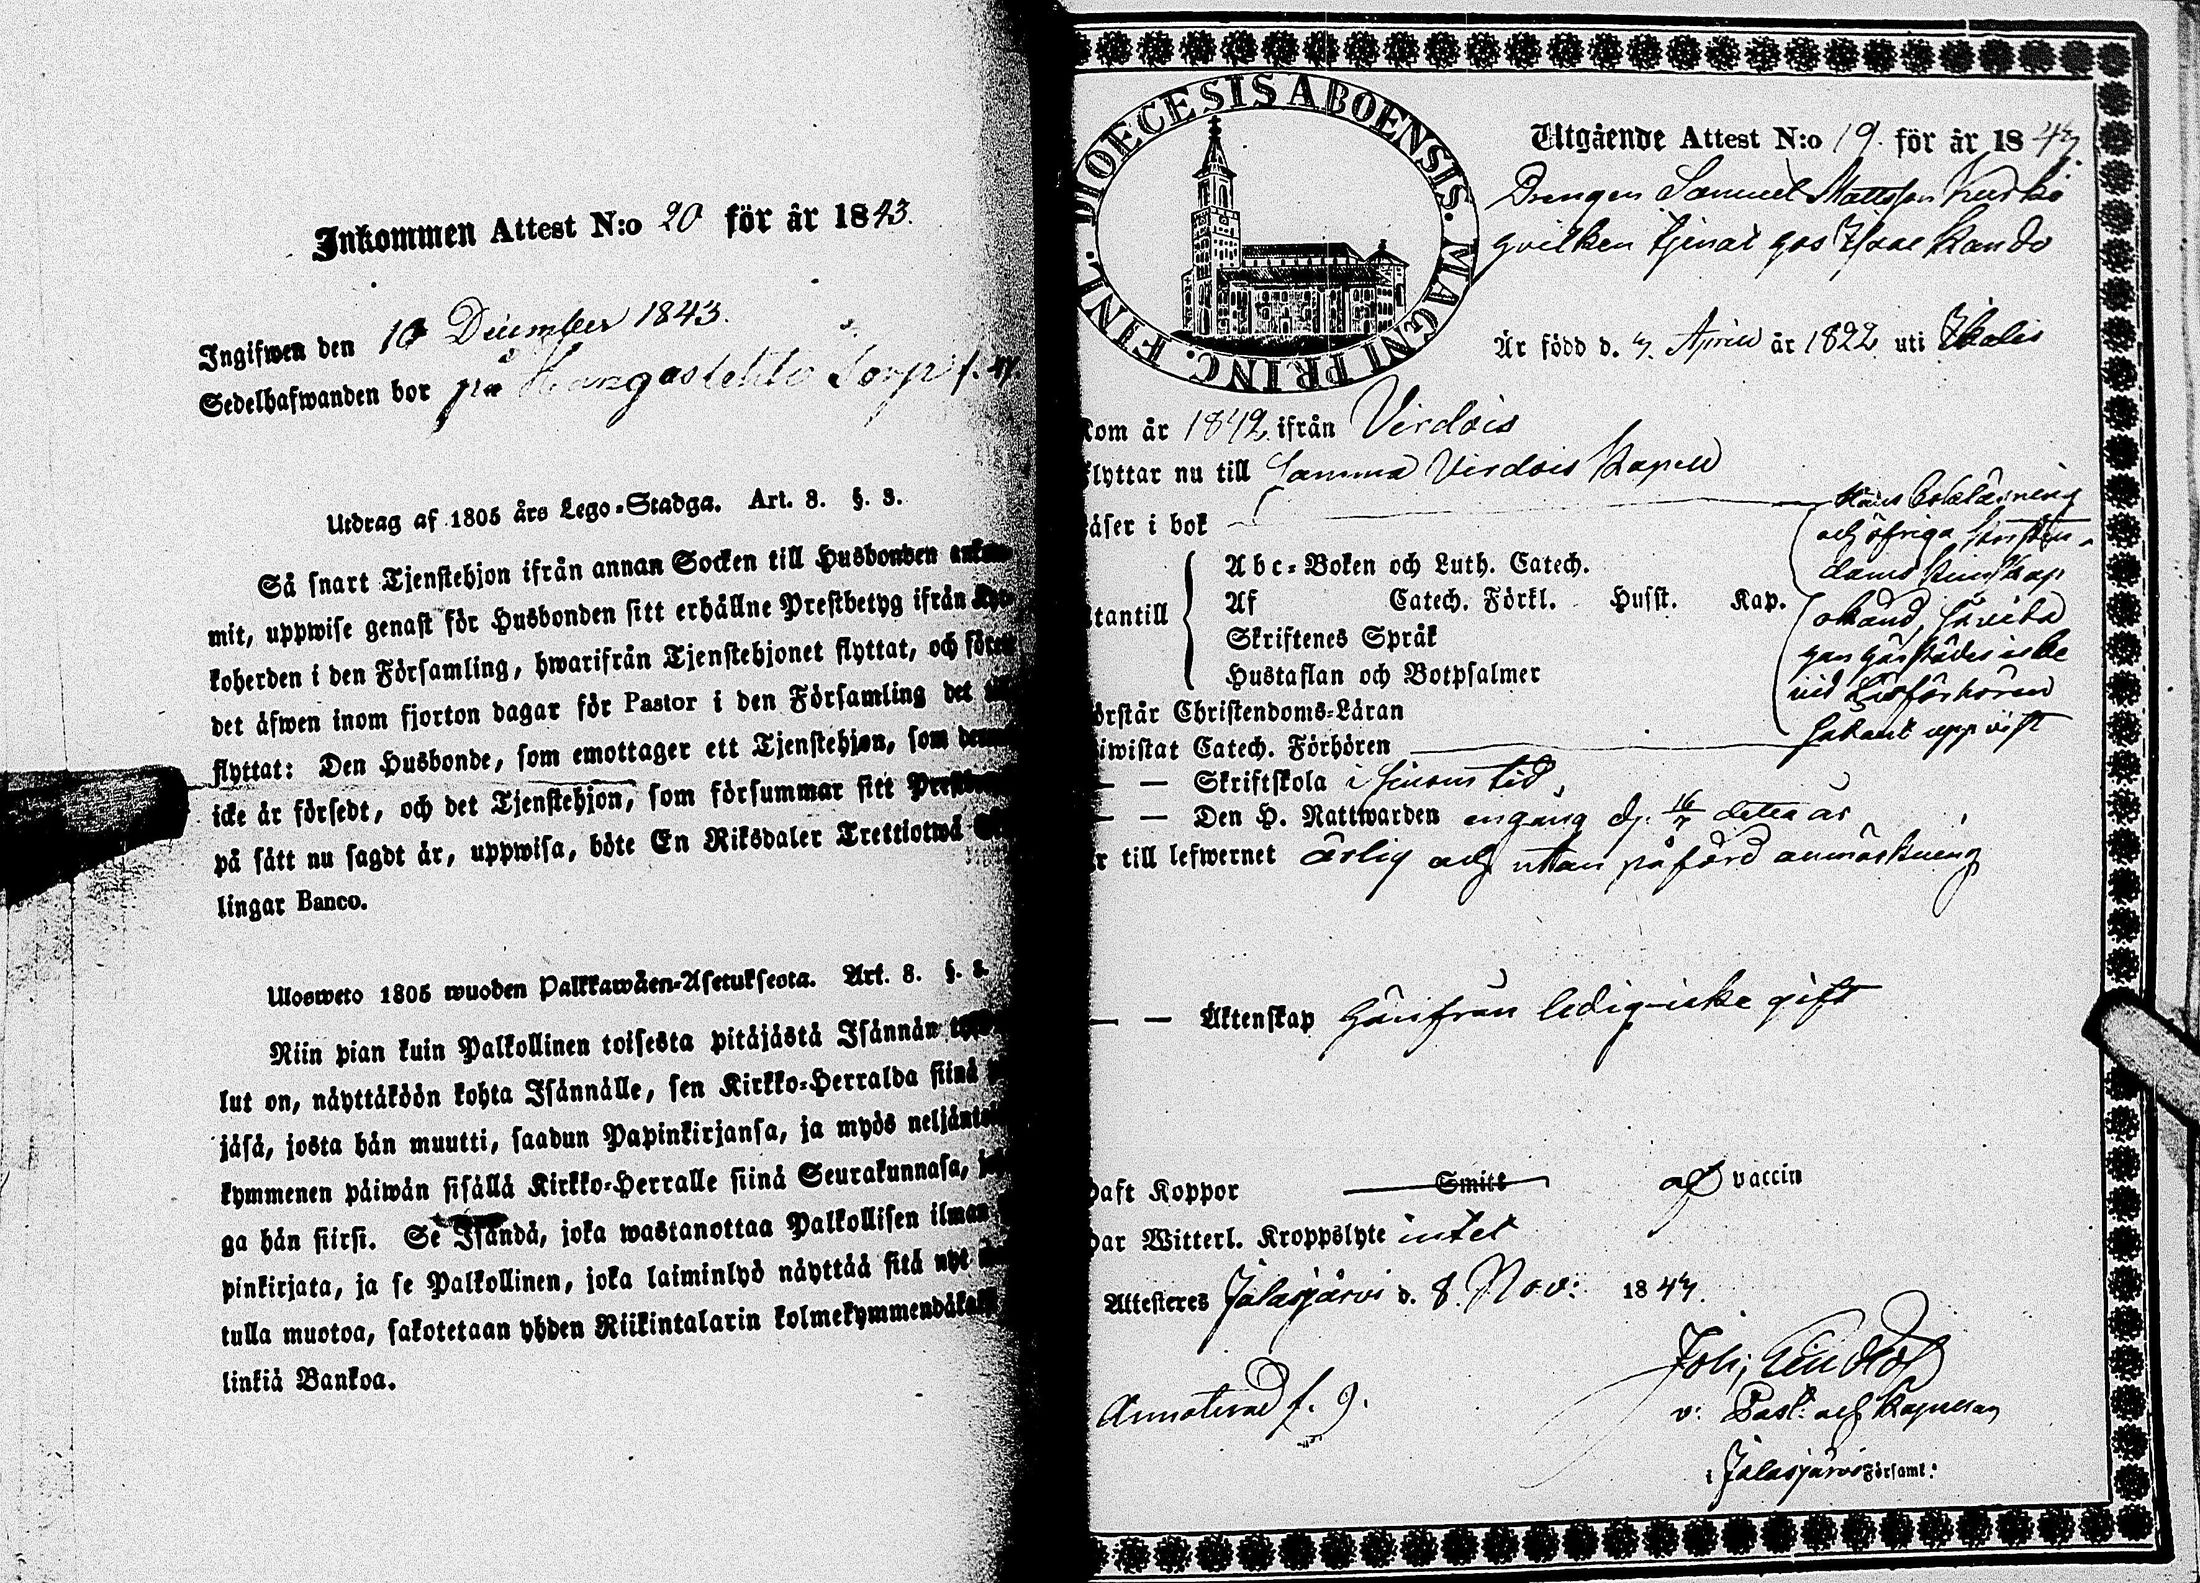 Inkommen Attest N:o 20 för år 1843.
Ingifwen den 10 December 1843.
Sedelhafwanden bor på Torp f.
Utdrag af 1805 års Lego-Stadga. Art. 8. §. 3.
Så snart Tjenstehjon ifrån annan Socken till Husbonden
mit, uppwise genast för Husbonden sitt erhållne Prestbetyg ifrån
koherden i den Församling, hwarifrån Tjenstehjonet flyttat, och
det äfwen inom fjorton dagar för Pastor i den Församling det
flyttat: Den Husbonde, som emottager ett Tjenstehjon, som
icke är försedt, och det Tjenstehjon, som försummar sitt
på sätt nu sagdt är, uppwisa, böte En Riksdaler Trettiotwå
lingar Banco.
Ulosweto 1805 wuoden Palkkawäen-Asetuksesta. Art. 8. §. 3.
Niin pian kuin Palkollinen toisesta pitäjästä Isännän
lut on, näyttäköön kohta Isännälle, sen Kirkko-Herralda siinä
jäsä, josta hän muutti, saadun Papinkirjansa, ja myös
kymmenen päiwän sisällä Kirkko-Herralle siinä Seurakunnasa,
ga hän siirsi. Se Isändä, joka wastanottaa Palkollisen ilman
pinkirjata, ja se Palkollinen, joka laiminlyö näyttää sitä nyt
tulla muotoa, sakotetaan yhden Riikintalarin
linkiä Bankoa.
DIOECESIS ABOENSIS. MAGNI PRINC. FINL.
Utgående Attest N:o 19. för år 1843.
Drengen Samuel Mattsson Kurki
hvilken tjenat hos Isaac Kando
Är född d. 3. April år 1822 uti Ikalis
kom år 1842 ifrån Virdois
flyttar nu till samma Virdois Kapell
Läser i bok
Hans bokläsning
och öfriga Christen-
doms kunskap
okänd,så vida
han härstädes icke
vid Läsförhören
sig uppvist
Utantill
Abc-Boken och Luth. Catech.
Af Catech. Förkl. Husst. Kap.
Skriftenes Språk
Hustaflan och Botpsalmer
örstår Christendoms-Läran
iwistat Catech. Förhören
— — Skriftskola i sinom tid,
— — Den H. Nattwarden en gång d. 16/7 detta år
r till lefwernet ärlig och utan påförd anmärkning
— — Äktenskap härifrån ledig icke gift
haft Koppor Smitt af vaccin
har Witterl. Kroppslyte intet
Attesteres Jalasjärvi d. 8. Nov: 1843.
Joh:
v: Past: och Kapellan
i Jalasjärvi Församl:
Annoterad f. 9.